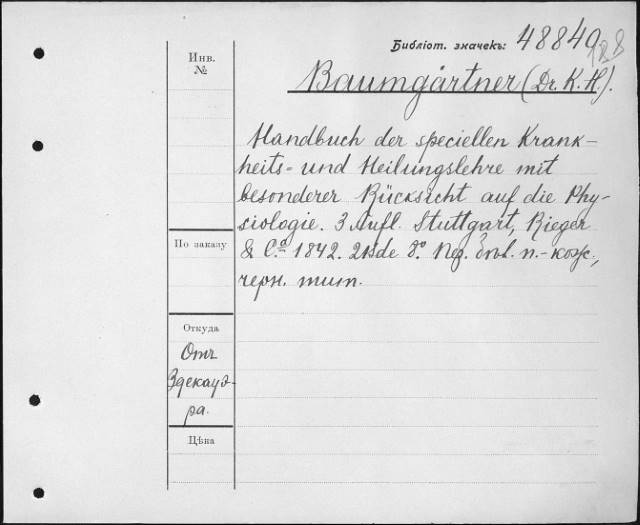 Библіот. значекъ: 48840
188
Инв.
№
Baumgärtner (Dr. K. H.).
Handbuch der speciellen Krank-
heits- und Heilungslehre mit
besonderer Rücksicht auf die Phy-
siologie. 3 Aufl. Stuttgart, Rieger
& Cº 1842. 2 Bde 8º. Пер. п.-кож.,
черн. тит.
По заказу
Откуда
Отъ
Здекауэ-
ра.
Цѣна